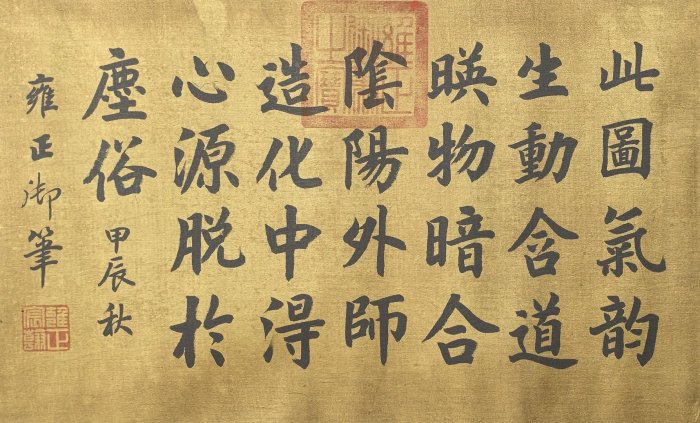 此圖氣韵
生動含道
暎物暗合
陰陽外師
造化中得
心源脱於
塵俗
甲辰秋
雍正御筆
雍正御筆之寶